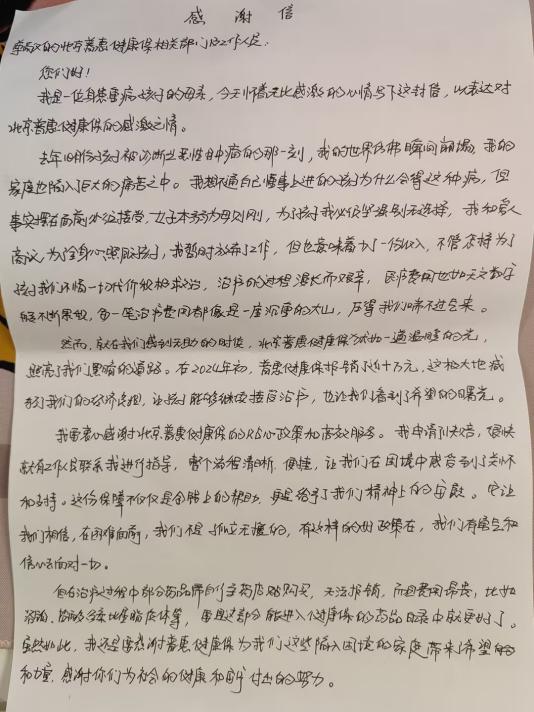 感谢信
尊敬的北京普惠健康保相关部门及工作人员：
您们好！
我是一位身患重病孩子的母亲，今天怀着无比感激的心情写下这封信，以表达对
北京普惠健康保的感激之情。
去年10月份孩子被诊断出恶性血中病的那一刻，我的世界仿佛瞬间崩塌，我的
家庭也陷入了巨大的痛苦之中。我想不通自己懂事上进的孩子为什么会得这种病，但
事实摆在面前必须接受，女子本弱为母则刚，为了孩子我必须坚强别无选择，我和爱人
商议，为了全身心照顾孩子，我暂时放弃了工作，但也意味着少了一份收入，不管怎样为了
孩子我们不惜一切代价积极求治，治疗的过程漫长而艰辛，医疗费用也如天文数字
般不断累积，每一笔治疗费用都像是一座沉重的大山，压得我们喘不过气来。
然而，就在我们感到无助的时候，北京普惠健康保犹如一道温暖的光，
照亮了我们黑暗的道路。在2024年初，普惠健康保报销了近十万元，这极大地减
轻了我们的经济负担，让孩子能够继续接受治疗，也让我们看到了希望的曙光。
我要衷心感谢北京普惠健康保的贴心政策和高效服务。我申请后，很快
就有工作人员联系我进行指导，整个流程清晰、便捷，让我们在困境中感受到了关怀
和支持。这份保障不仅仅是金钱上的帮助，更是给予了我们精神上的安慰。它让
我们相信，在困难面前，我们不是孤立无援的，有这样的好政策在，我们有勇气和
信心去面对一切。
但在治疗过程中部分药品需自行去药店购买，无法报销，而且费用昂贵，比如
脂质体等，要是这部分能进入健康保的药品目录中就更好了。
虽然如此，我还是要感谢普惠健康保为我们这些陷入困境的家庭带来了希望
和力量，感谢你们为社会的健康和付出的努力。